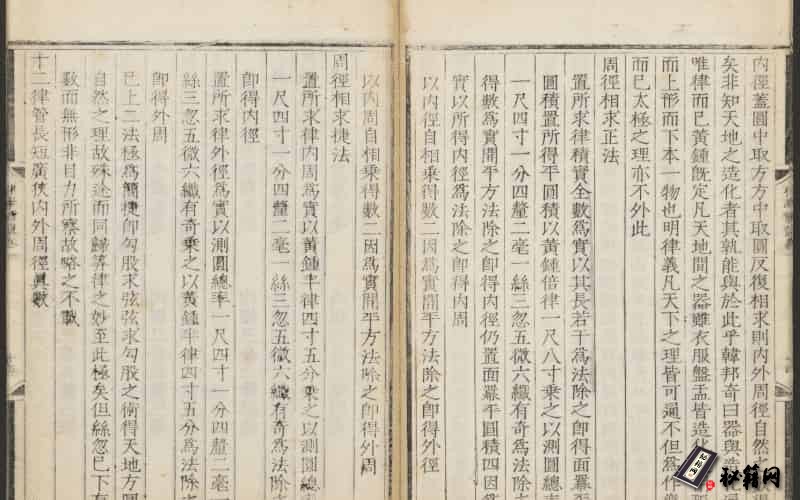 內徑蓋圓中取方方中取圓反復相求則內外周徑自然
矣非知天地之造化者其孰能與於此乎韓邦奇曰器與
唯律而已黃鍾既定凡天地間之器雖衣服盤盂皆造化
而上形而下本一物也明律義凡天下之理皆可通不但爲作
而已太極之理亦不外此
周徑相求正法
置所求律積實全數爲實以其長若干爲法除之即得面冪
圓積置所得平圓積以黃鍾倍律一尺八寸乘之以測圓總率
一尺四寸一分四釐二毫一絲三忽五微六纖有奇爲法除之
得數爲實開平方法除之即得內徑仍置面冪平圓積四因爲
實以所得內徑爲法除之即得內周
以內徑自相乘得數二因爲實開平方法除之即得外徑
以內周自相乘得數二因爲實開平方法除之即得外周
周徑相求捷法
置所求律內周爲實以黃鍾半律四寸五分乘之以測圓總率
一尺四寸一分四釐二毫一絲三忽五微六纖有奇爲法除之
即得內徑
置所求律外徑爲實以測圓總率一尺四寸一分四釐二毫一
絲三忽五微六纖有奇乘之以黃鍾半律四寸五分爲法除之
即得外周
已上二法極爲簡捷即勾股求弦弦求勾股之術得天地方圓
自然之理故殊途而同歸筭律之妙至此極矣但絲忽已下有
數而無形非目力所察故略之不載
十二律管長短廣狹內外周徑眞數
秘籍网